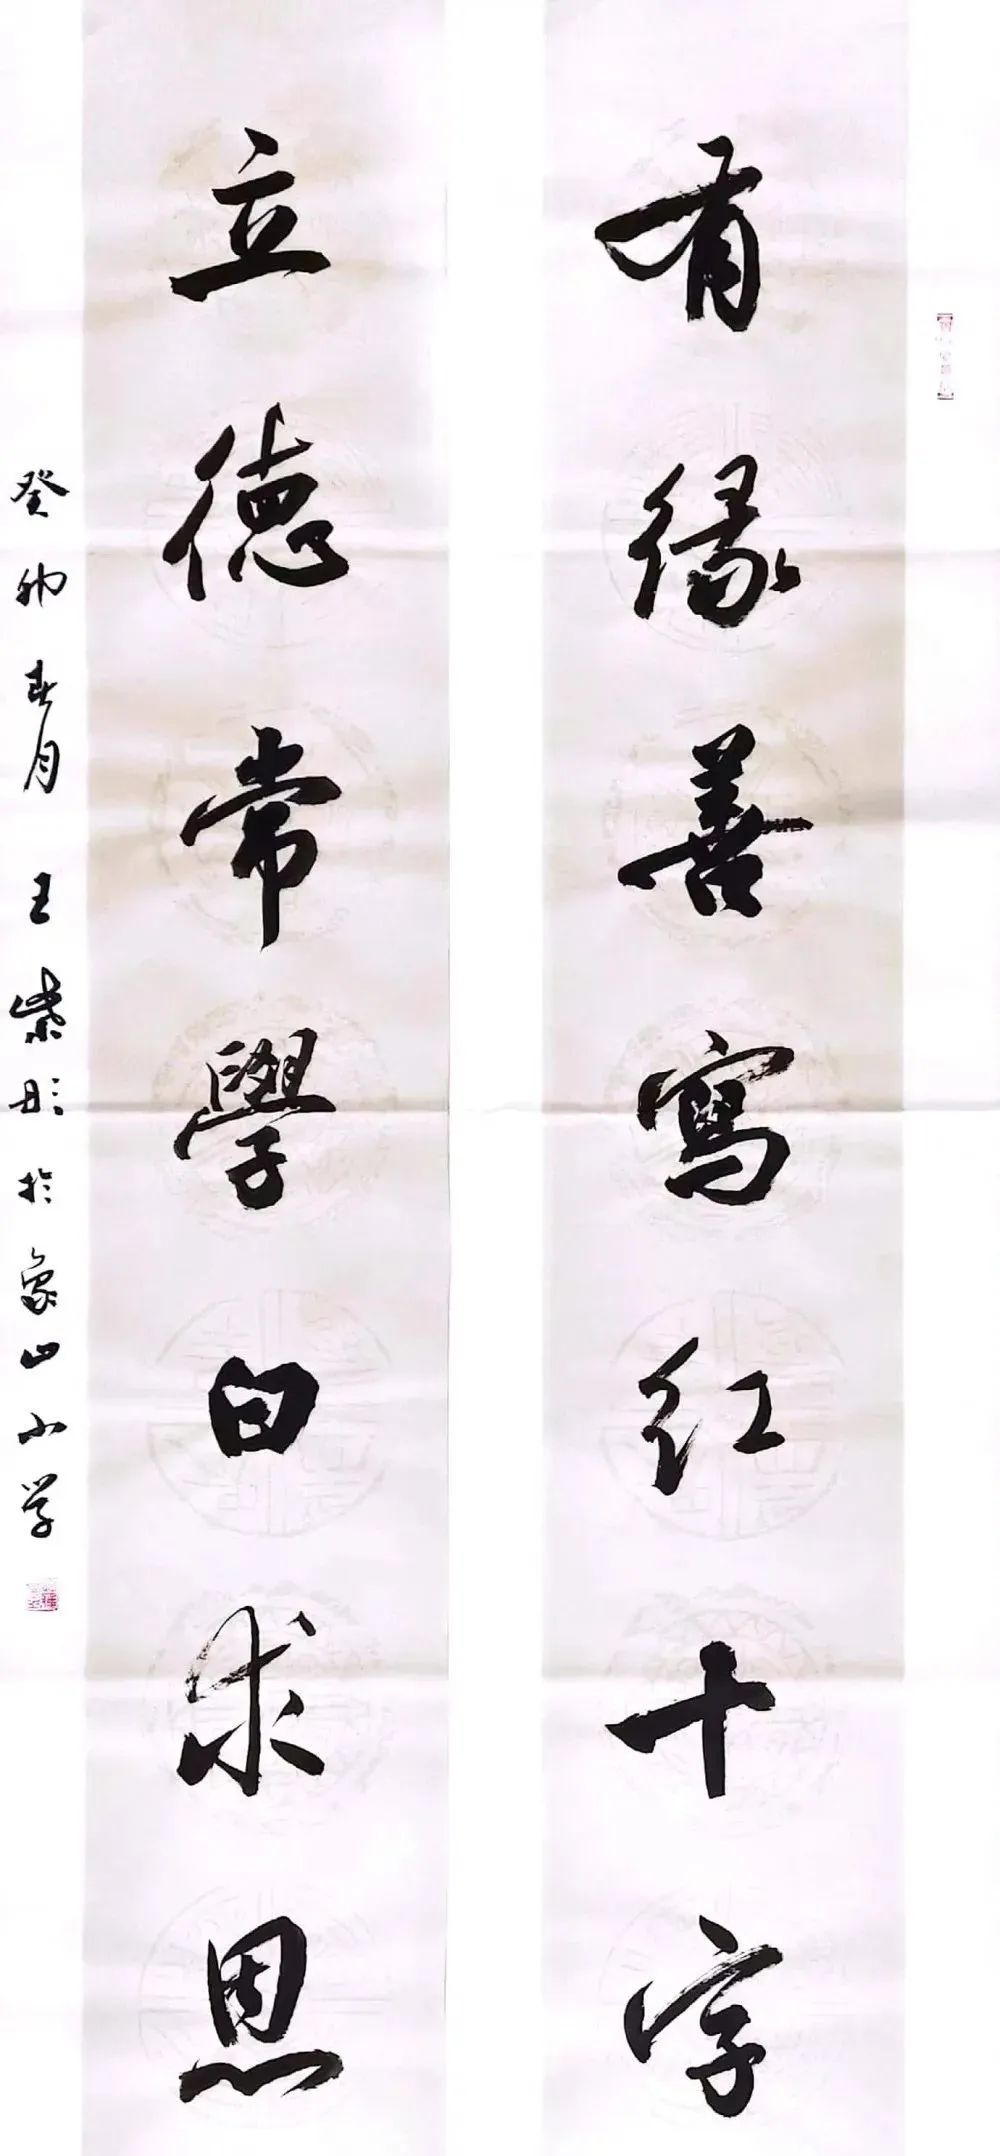 有缘善寫红十字
立德常學白求恩
癸卯春月王紫彤於象山小学